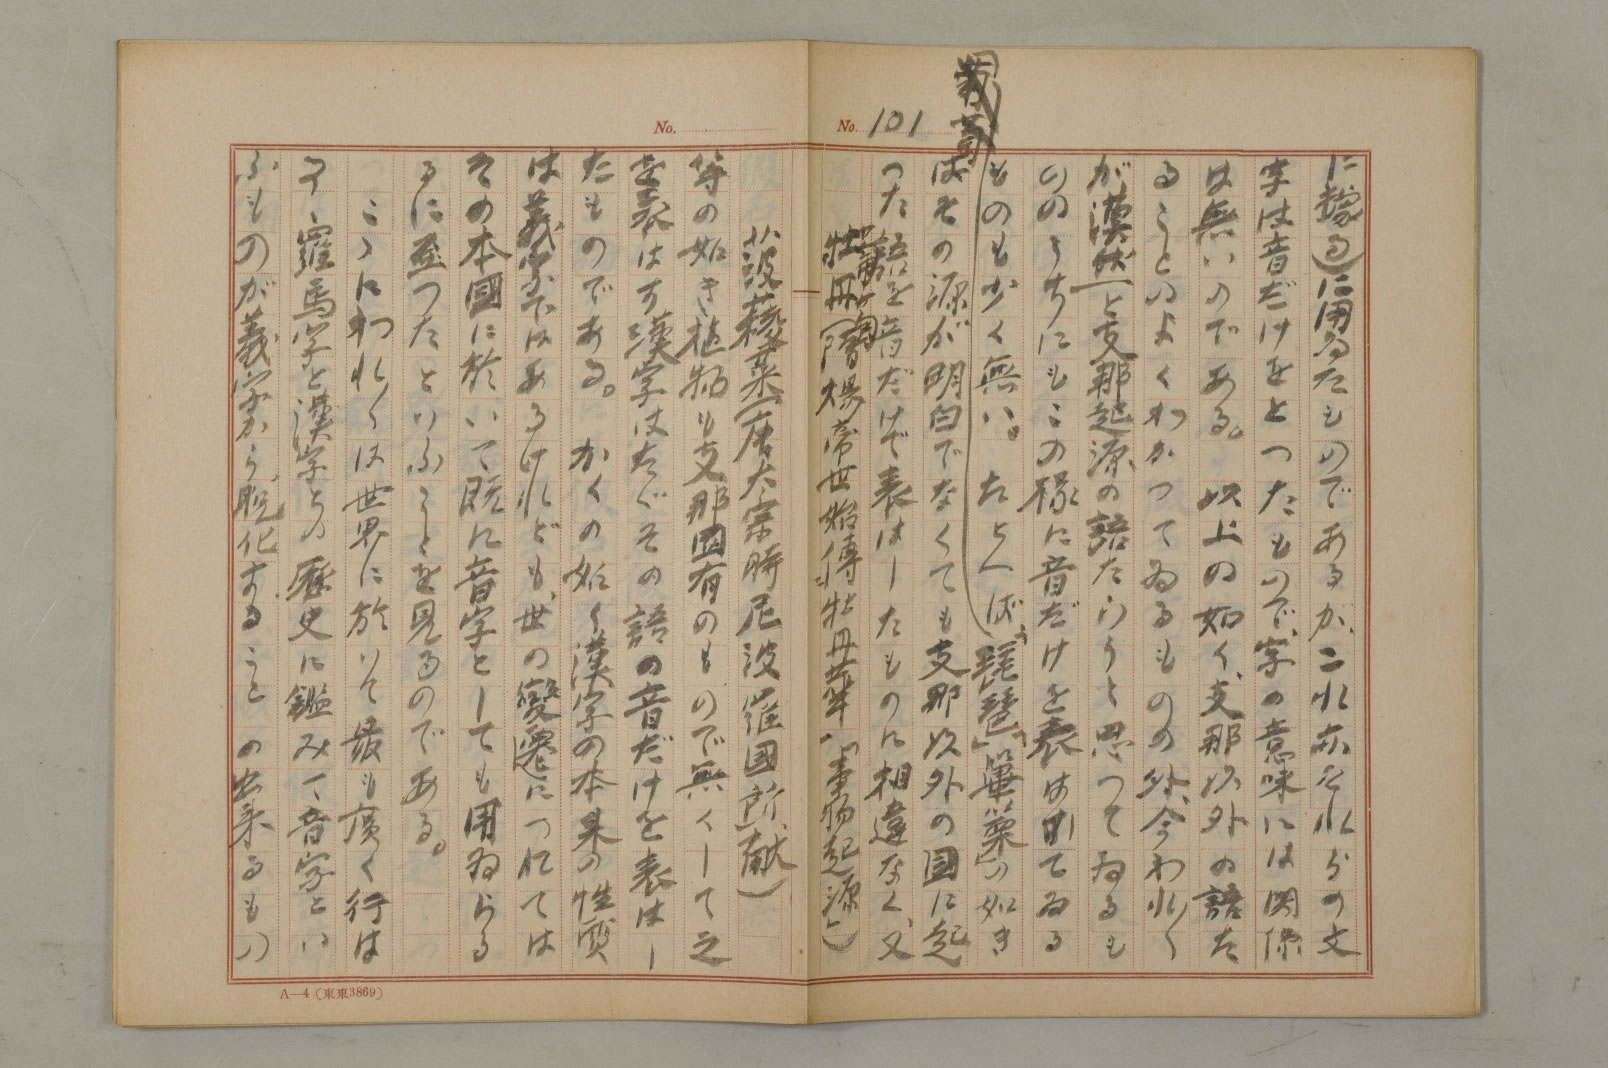 No. 101
に據る)に用ゐたものであるが、これ亦それらの文
字は音だけをとつたもので、字の意味には関係
は無いのである。以上の如く、支那以外の語た
ることのよくわかつてゐるものの外、今われ〱
が漢然と支那起源の語たらうと思つてゐるも
ののうちにもこの様に音だけを表はしてゐる
ものも少く無い。たとへば、「琵琶」「篳篥」の如き
葡萄
ばその源が明白でなくても支那以外の國に起
つた語を音だけで表はしたものに相違なく、又
牡丹(隋煬帝世始傳牡丹華」「事物起源」)
No.
菠薐菜(唐太宗時尼波羅国所献)
等の如き植物も支那固有のもので無くして之
を表はす漢字はたゞその語の音だけを表はし
たものである。かくの如く漢字の本来の性質
は義字ではあるけれども、世の變遷につれては
その本國に於いて既に音字としても用ゐらる
るに至つたといふことを見るのである。
こゝにわれ〱は世界に於いて最も廣く行は
るゝ羅馬字と漢字との歴史に鑑みて音字とい
ふものが義字から脱化することの出来るもの
A—4(東東3869)